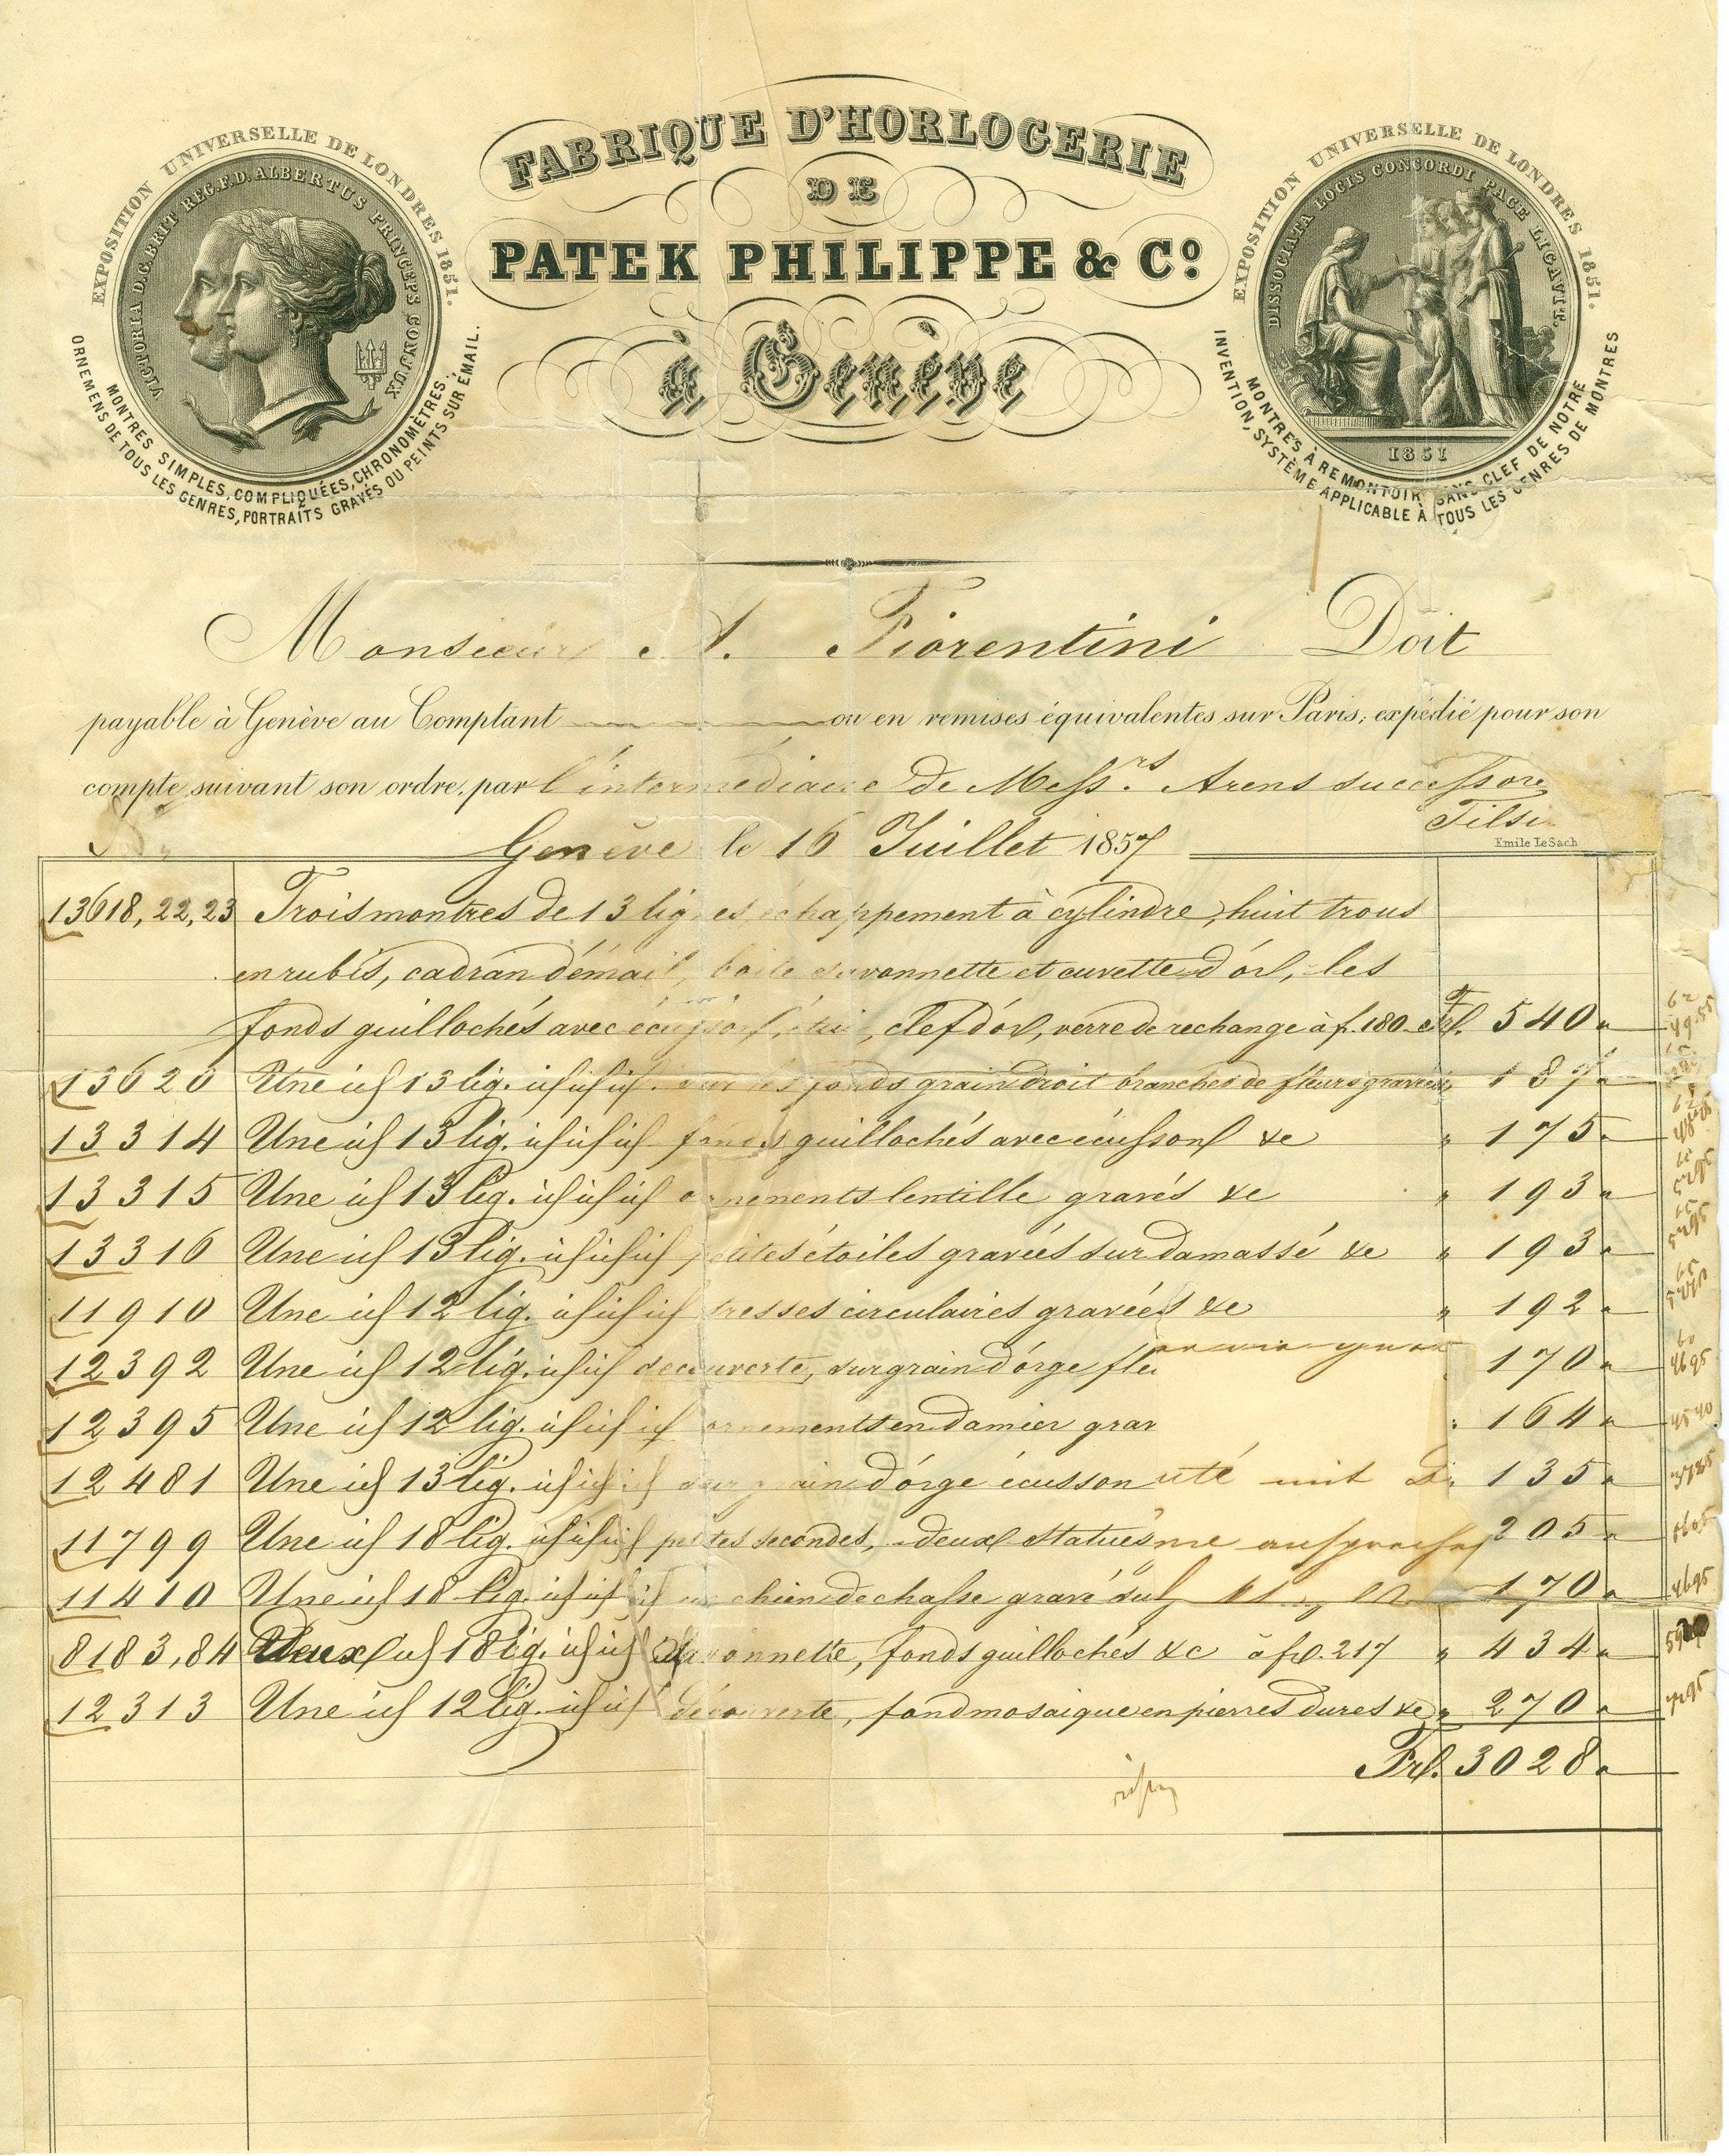 FABRIQUE D'HORLOGERIE
DE
PATEK PHILIPPE & Cº
à Genève
EXPOSITION UNIVERSELLE DE LONDRES 1851.
VICTORIA D.G. BRIT. REG. F.D. ALBERTUS PRINCEPS CONJUX
MONTRES SIMPLES, COMPLIQUÉES, CHRONOMÈTRES.
ORNEMENS DE TOUS LES GENRES, PORTRAITS GRAVÉS OU PEINTS SUR ÉMAIL.
EXPOSITION UNIVERSELLE DE LONDRES 1851.
DISSOCIATA LOCIS CONCORDI PACE LIGAVIT.
1851
MONTRES À REMONTOIR SANS CLEF DE NOTRE
INVENTION, SYSTÈME APPLICABLE À TOUS LES GENRES DE MONTRES
Monsieur A. Fiorentini Doit
payable à Genève au Comptant ou en remises équivalentes sur Paris, expédié pour son
compte suivant son ordre, par l'intermédiaire de Mess.rs Arens successore
Filsi
Genève le 16 Juillet 1857
Emile LeSach
13618, 22, 23 Trois montres de 13 lignes échappement à cylindre, huit trous
en rubis, cadran d'émail, boite savonnette et cuvette d'or, les
fonds guillochés avec écusson, étui, clef d'or, verre de rechange à f. 180 Fr. 540 "
13620 Une id 13 lig. id id id sur les fonds grain droit branches de fleurs gravées " 187 "
13314 Une id 13 lig. id id id fonds guillochés avec écusson &c " 175 "
13315 Une id 13 lig. id id id ornements lentille gravés &c " 193 "
13316 Une id 13 lig. id id id petites étoiles gravées sur damassé &c " 193 "
11910 Une id 12 lig. id id id tresses circulaires gravées &c " 192 "
12392 Une id 12 lig. id id découverte, sur grain d'orge fleu 170 "
12395 Une id 12 lig. id id id ornements en damier grav " 164 "
12481 Une id 13 lig. id id id sur grain d'orge écusson 135 "
11799 Une id 18 lig. id id id petites secondes, deux statues 205 "
11410 Une id 18 lig. id id id un chien de chasse gravé sur 170 "
8183, 84 Deux id 18 lig. id id savonnette, fonds guillochés &c à f. 217 " 434 "
12313 Une id 12 lig. id id découverte, fond mosaïque en pierres dures &c " 270 "
Fr. 3028 "